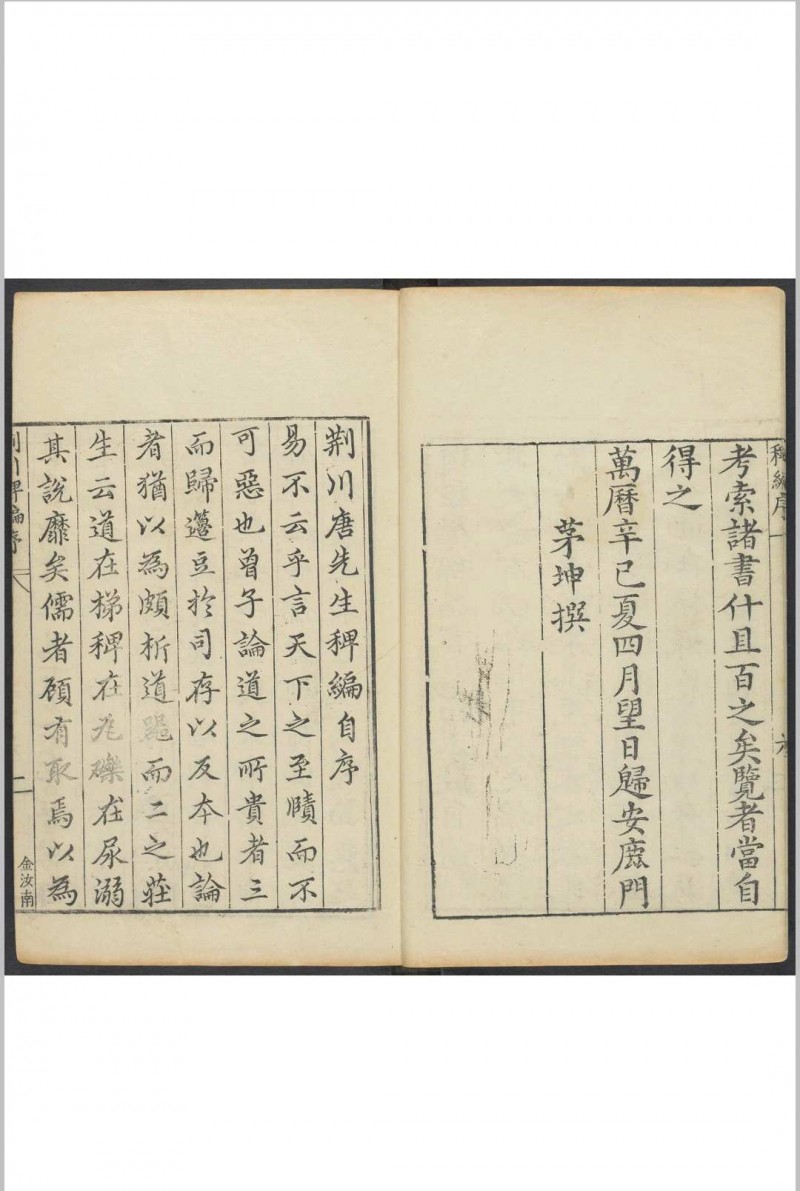 稗編序
考索諸書什且百之矣覽者當自
得之
萬曆辛巳夏四月望日歸安鹿門
茅坤撰
荆川唐先生稗編自序
易不云乎言天下之至賾而不
可惡也曾子論道之所貴者三
而歸籩豆於司存以反本也論
者猶以為頗析道器而二之莊
生云道在梯稗在瓦礫在尿溺
其說靡矣儒者顧有取焉以為
荆川稗編序
一
金汝南